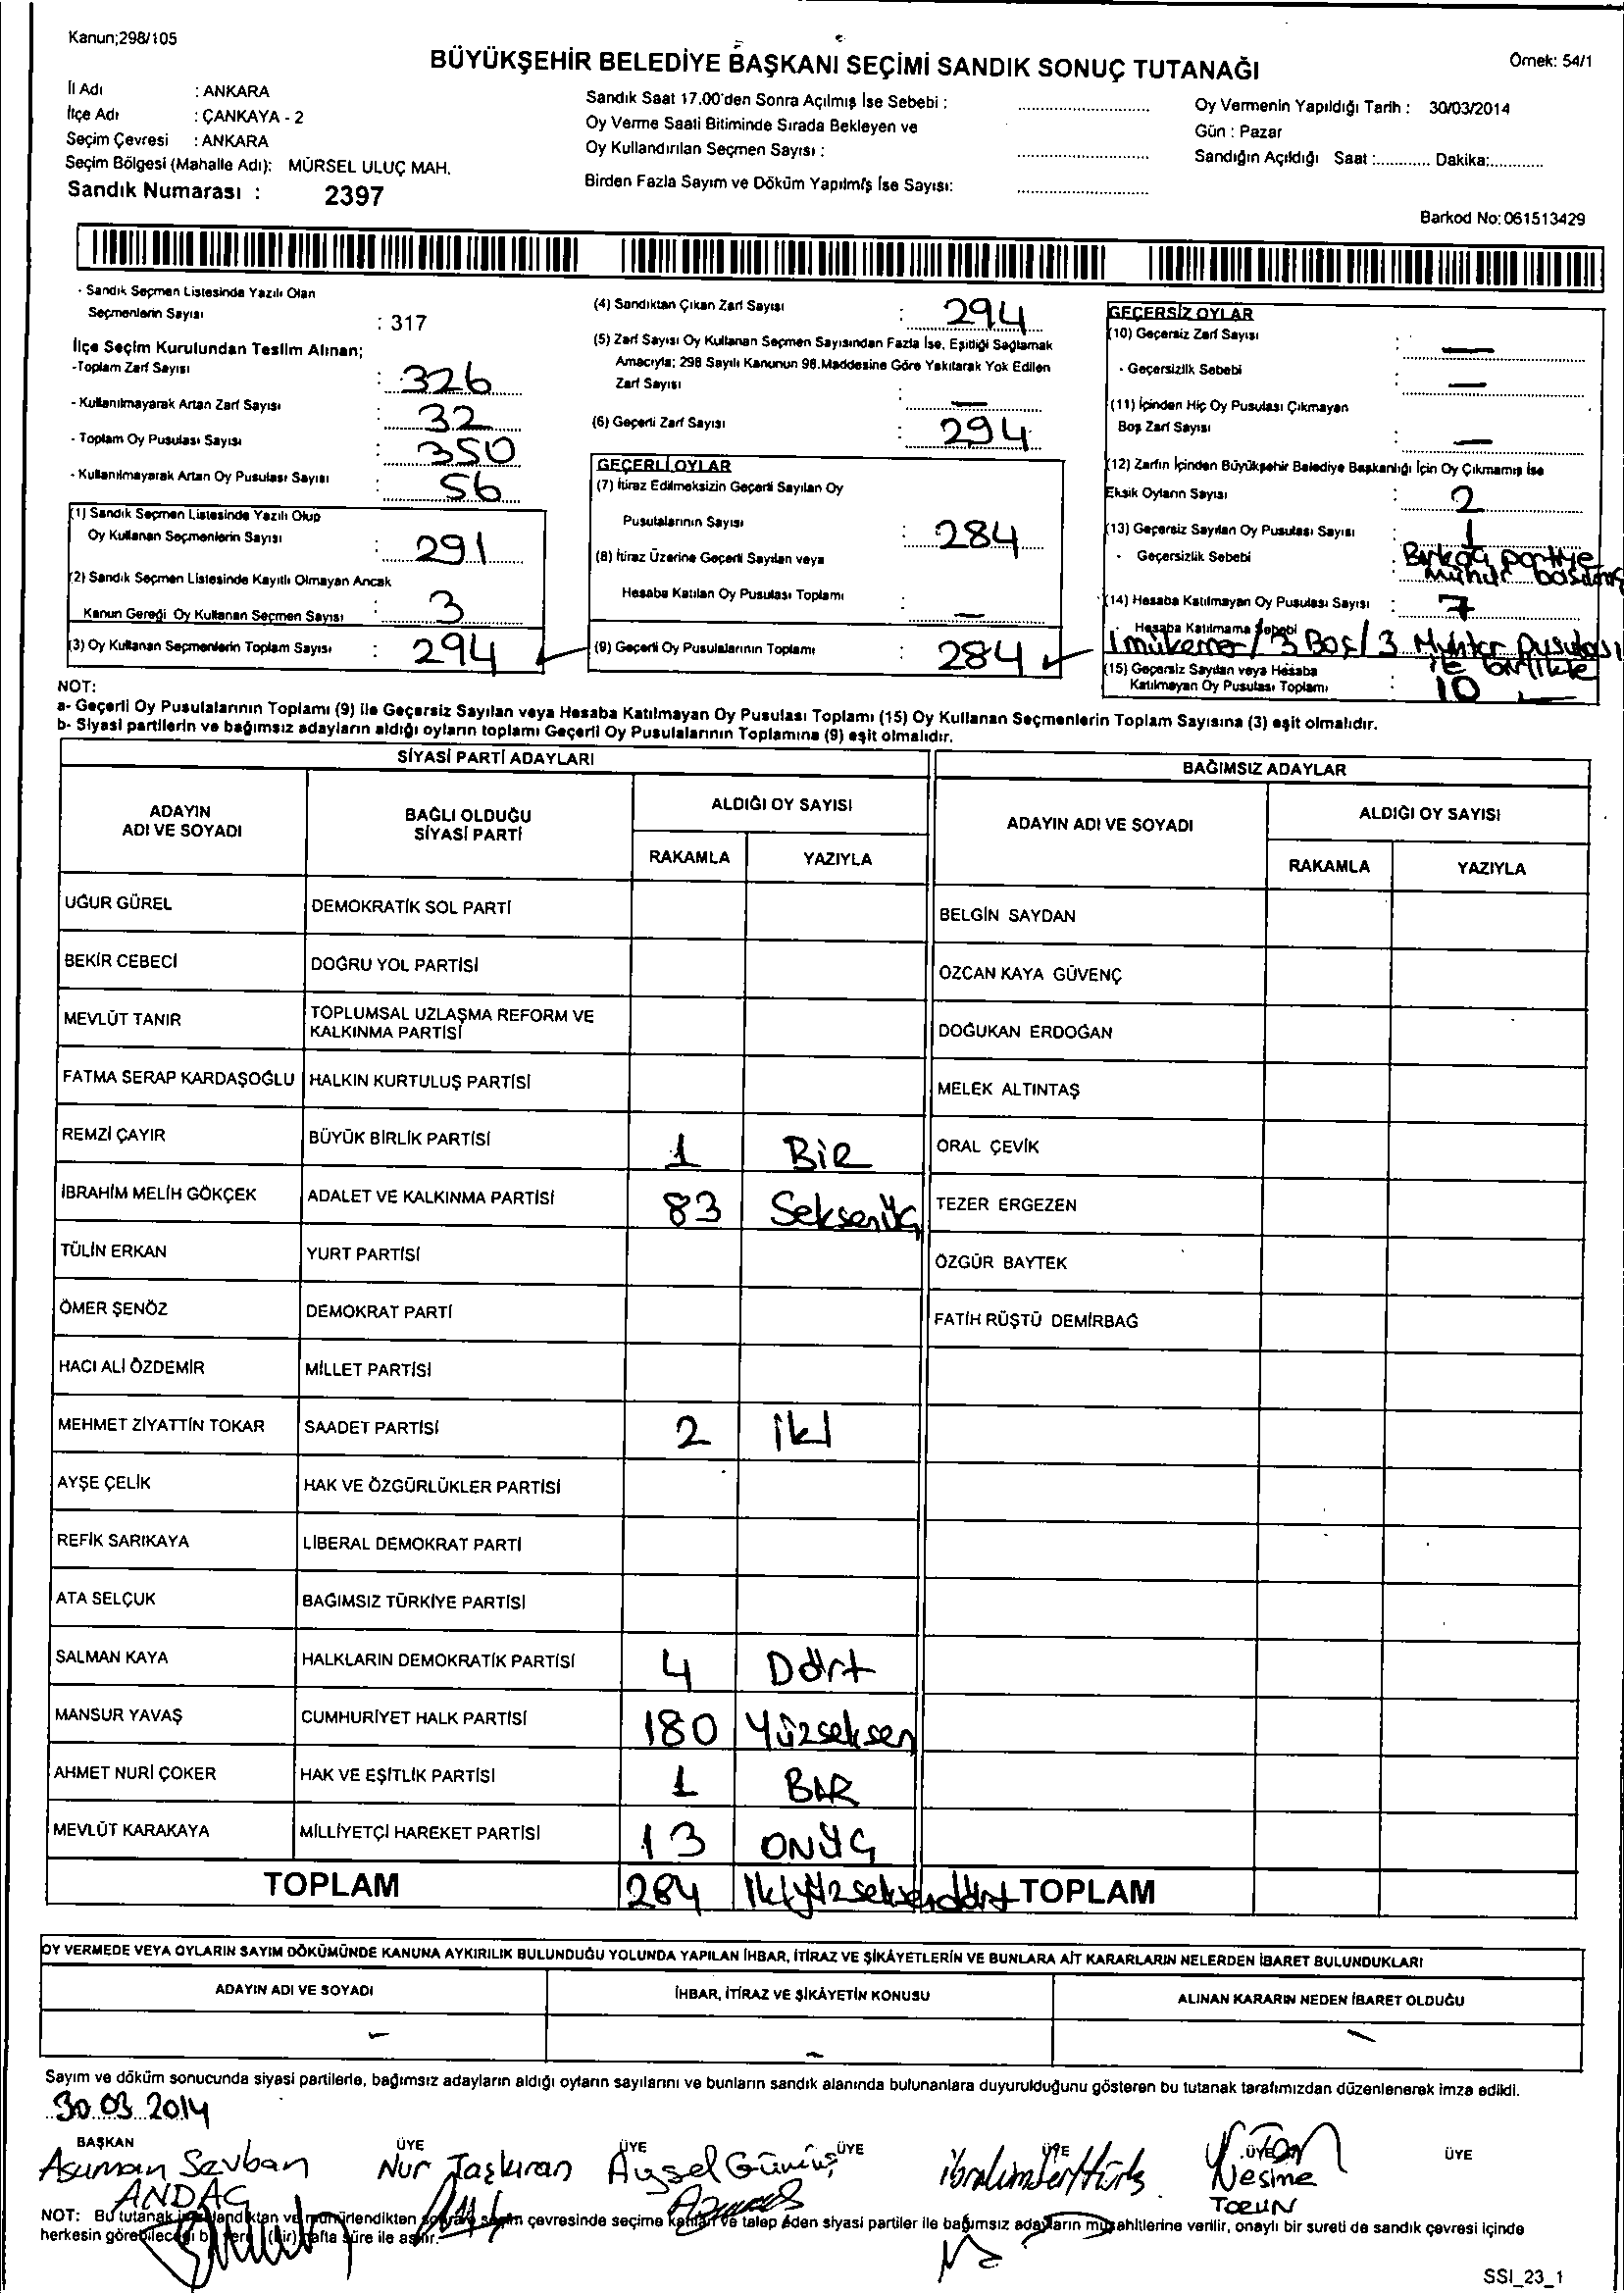 Kanun;298/105
BÜYÜKŞEHİR BELEDİYE BAŞKANI SEÇİMİ SANDIK SONUÇ TUTANAĞI
Örnek: 54/1
İl Adı : ANKARA
İlçe Adı : ÇANKAYA - 2
Seçim Çevresi : ANKARA
Seçim Bölgesi (Mahalle Adı): MÜRSEL ULUÇ MAH.
Sandık Numarası : 2397
Sandık Saat 17.00'den Sonra Açılmış İse Sebebi :
Oy Verme Saati Bitiminde Sırada Bekleyen ve
Oy Kullandırılan Seçmen Sayısı :
Birden Fazla Sayım ve Döküm Yapılmış İse Sayısı:
Oy Vermenin Yapıldığı Tarih : 30/03/2014
Gün : Pazar
Sandığın Açıldığı Saat :............ Dakika:............
Barkod No:061513429
- Sandık Seçmen Listesinde Yazılı Olan
Seçmenlerin Sayısı : 317
İlçe Seçim Kurulundan Teslim Alınan;
-Toplam Zarf Sayısı : 326
- Kullanılmayarak Artan Zarf Sayısı : 32
- Toplam Oy Pusulası Sayısı : 350
- Kullanılmayarak Artan Oy Pusulası Sayısı : 56
(1) Sandık Seçmen Listesinde Yazılı Olup
Oy Kullanan Seçmenlerin Sayısı : 291
(2) Sandık Seçmen Listesinde Kayıtlı Olmayan Ancak
Kanun Gereği Oy Kullanan Seçmen Sayısı : 3
(3) Oy Kullanan Seçmenlerin Toplam Sayısı : 294
(4) Sandıktan Çıkan Zarf Sayısı : 294
(5) Zarf Sayısı Oy Kullanan Seçmen Sayısından Fazla İse, Eşitliği Sağlamak
Amacıyla; 298 Sayılı Kanunun 98.Maddesine Göre Yakılarak Yok Edilen
Zarf Sayısı : —
(6) Geçerli Zarf Sayısı : 294
GEÇERLİ OYLAR
(7) İtiraz Edilmeksizin Geçerli Sayılan Oy
Pusulalarının Sayısı : 284
(8) İtiraz Üzerine Geçerli Sayılan veya
Hesaba Katılan Oy Pusulası Toplamı : —
(9) Geçerli Oy Pusulalarının Toplamı : 284
GEÇERSİZ OYLAR
(10) Geçersiz Zarf Sayısı : —
- Geçersizlik Sebebi : —
(11) İçinden Hiç Oy Pusulası Çıkmayan
Boş Zarf Sayısı : —
(12) Zarfın İçinden Büyükşehir Belediye Başkanlığı İçin Oy Çıkmamış İse
Eksik Oyların Sayısı : 2
(13) Geçersiz Sayılan Oy Pusulası Sayısı : 1
- Geçersizlik Sebebi : Birkaç partiye
mühür basılmış
(14) Hesaba Katılmayan Oy Pusulası Sayısı : 7
- Hesaba Katılmama Sebebi
1 mükerrer / 3 Boş / 3 Muhtar pusulası
ile birlikte
(15) Geçersiz Sayılan veya Hesaba
Katılmayan Oy Pusulası Toplamı : 10
NOT:
a- Geçerli Oy Pusulalarının Toplamı (9) ile Geçersiz Sayılan veya Hesaba Katılmayan Oy Pusulası Toplamı (15) Oy Kullanan Seçmenlerin Toplam Sayısına (3) eşit olmalıdır.
b- Siyasi partilerin ve bağımsız adayların aldığı oyların toplamı Geçerli Oy Pusulalarının Toplamına (9) eşit olmalıdır.
SİYASİ PARTİ ADAYLARI
BAĞIMSIZ ADAYLAR
ADAYIN ADI VE SOYADI
BAĞLI OLDUĞU SİYASİ PARTİ
ALDIĞI OY SAYISI
RAKAMLA YAZIYLA
ADAYIN ADI VE SOYADI
ALDIĞI OY SAYISI
RAKAMLA YAZIYLA
UĞUR GÜREL DEMOKRATİK SOL PARTİ BELGİN SAYDAN
BEKİR CEBECİ DOĞRU YOL PARTİSİ ÖZCAN KAYA GÜVENÇ
MEVLÜT TANIR TOPLUMSAL UZLAŞMA REFORM VE KALKINMA PARTİSİ DOĞUKAN ERDOĞAN
FATMA SERAP KARDAŞOĞLU HALKIN KURTULUŞ PARTİSİ MELEK ALTINTAŞ
REMZİ ÇAYIR BÜYÜK BİRLİK PARTİSİ 1 BİR ORAL ÇEVİK
İBRAHİM MELİH GÖKÇEK ADALET VE KALKINMA PARTİSİ 83 Seksenüç TEZER ERGEZEN
TÜLİN ERKAN YURT PARTİSİ ÖZGÜR BAYTEK
ÖMER ŞENÖZ DEMOKRAT PARTİ FATİH RÜŞTÜ DEMİRBAĞ
HACI ALİ ÖZDEMİR MİLLET PARTİSİ
MEHMET ZİYATTİN TOKAR SAADET PARTİSİ 2 İki
AYŞE ÇELİK HAK VE ÖZGÜRLÜKLER PARTİSİ
REFİK SARIKAYA LİBERAL DEMOKRAT PARTİ
ATA SELÇUK BAĞIMSIZ TÜRKİYE PARTİSİ
SALMAN KAYA HALKLARIN DEMOKRATİK PARTİSİ 4 Dört
MANSUR YAVAŞ CUMHURİYET HALK PARTİSİ 180 Yüzseksen
AHMET NURİ ÇOKER HAK VE EŞİTLİK PARTİSİ 1 BİR
MEVLÜT KARAKAYA MİLLİYETÇİ HAREKET PARTİSİ 13 ONÜÇ
TOPLAM 284 İkiyüzseksendört TOPLAM
OY VERMEDE VEYA OYLARIN SAYIM DÖKÜMÜNDE KANUNA AYKIRILIK BULUNDUĞU YOLUNDA YAPILAN İHBAR, İTİRAZ VE ŞİKÂYETLERİN VE BUNLARA AİT KARARLARIN NELERDEN İBARET BULUNDUKLARI
ADAYIN ADI VE SOYADI İHBAR, İTİRAZ VE ŞİKÂYETİN KONUSU ALINAN KARARIN NEDEN İBARET OLDUĞU
— — —
Sayım ve döküm sonucunda siyasi partilerle, bağımsız adayların aldığı oyların sayılarını ve bunların sandık alanında bulunanlara duyurulduğunu gösteren bu tutanak tarafımızdan düzenlenerek imza edildi.
30.03.2014
BAŞKAN ÜYE ÜYE ÜYE ÜYE ÜYE ÜYE
Asuman Sevban ANDAÇ
Nur Taşkıran
Aysel Gümüş
Nesime TORUN
NOT: Bu tutanak imzalandıktan ve mühürlendikten sonra seçim çevresinde seçime katılan ve talep eden siyasi partiler ile bağımsız adayların müşahitlerine verilir, onaylı bir sureti de sandık çevresi içinde
herkesin görebileceği bir yere (bir) hafta süre ile asılır.
SSI_23_1